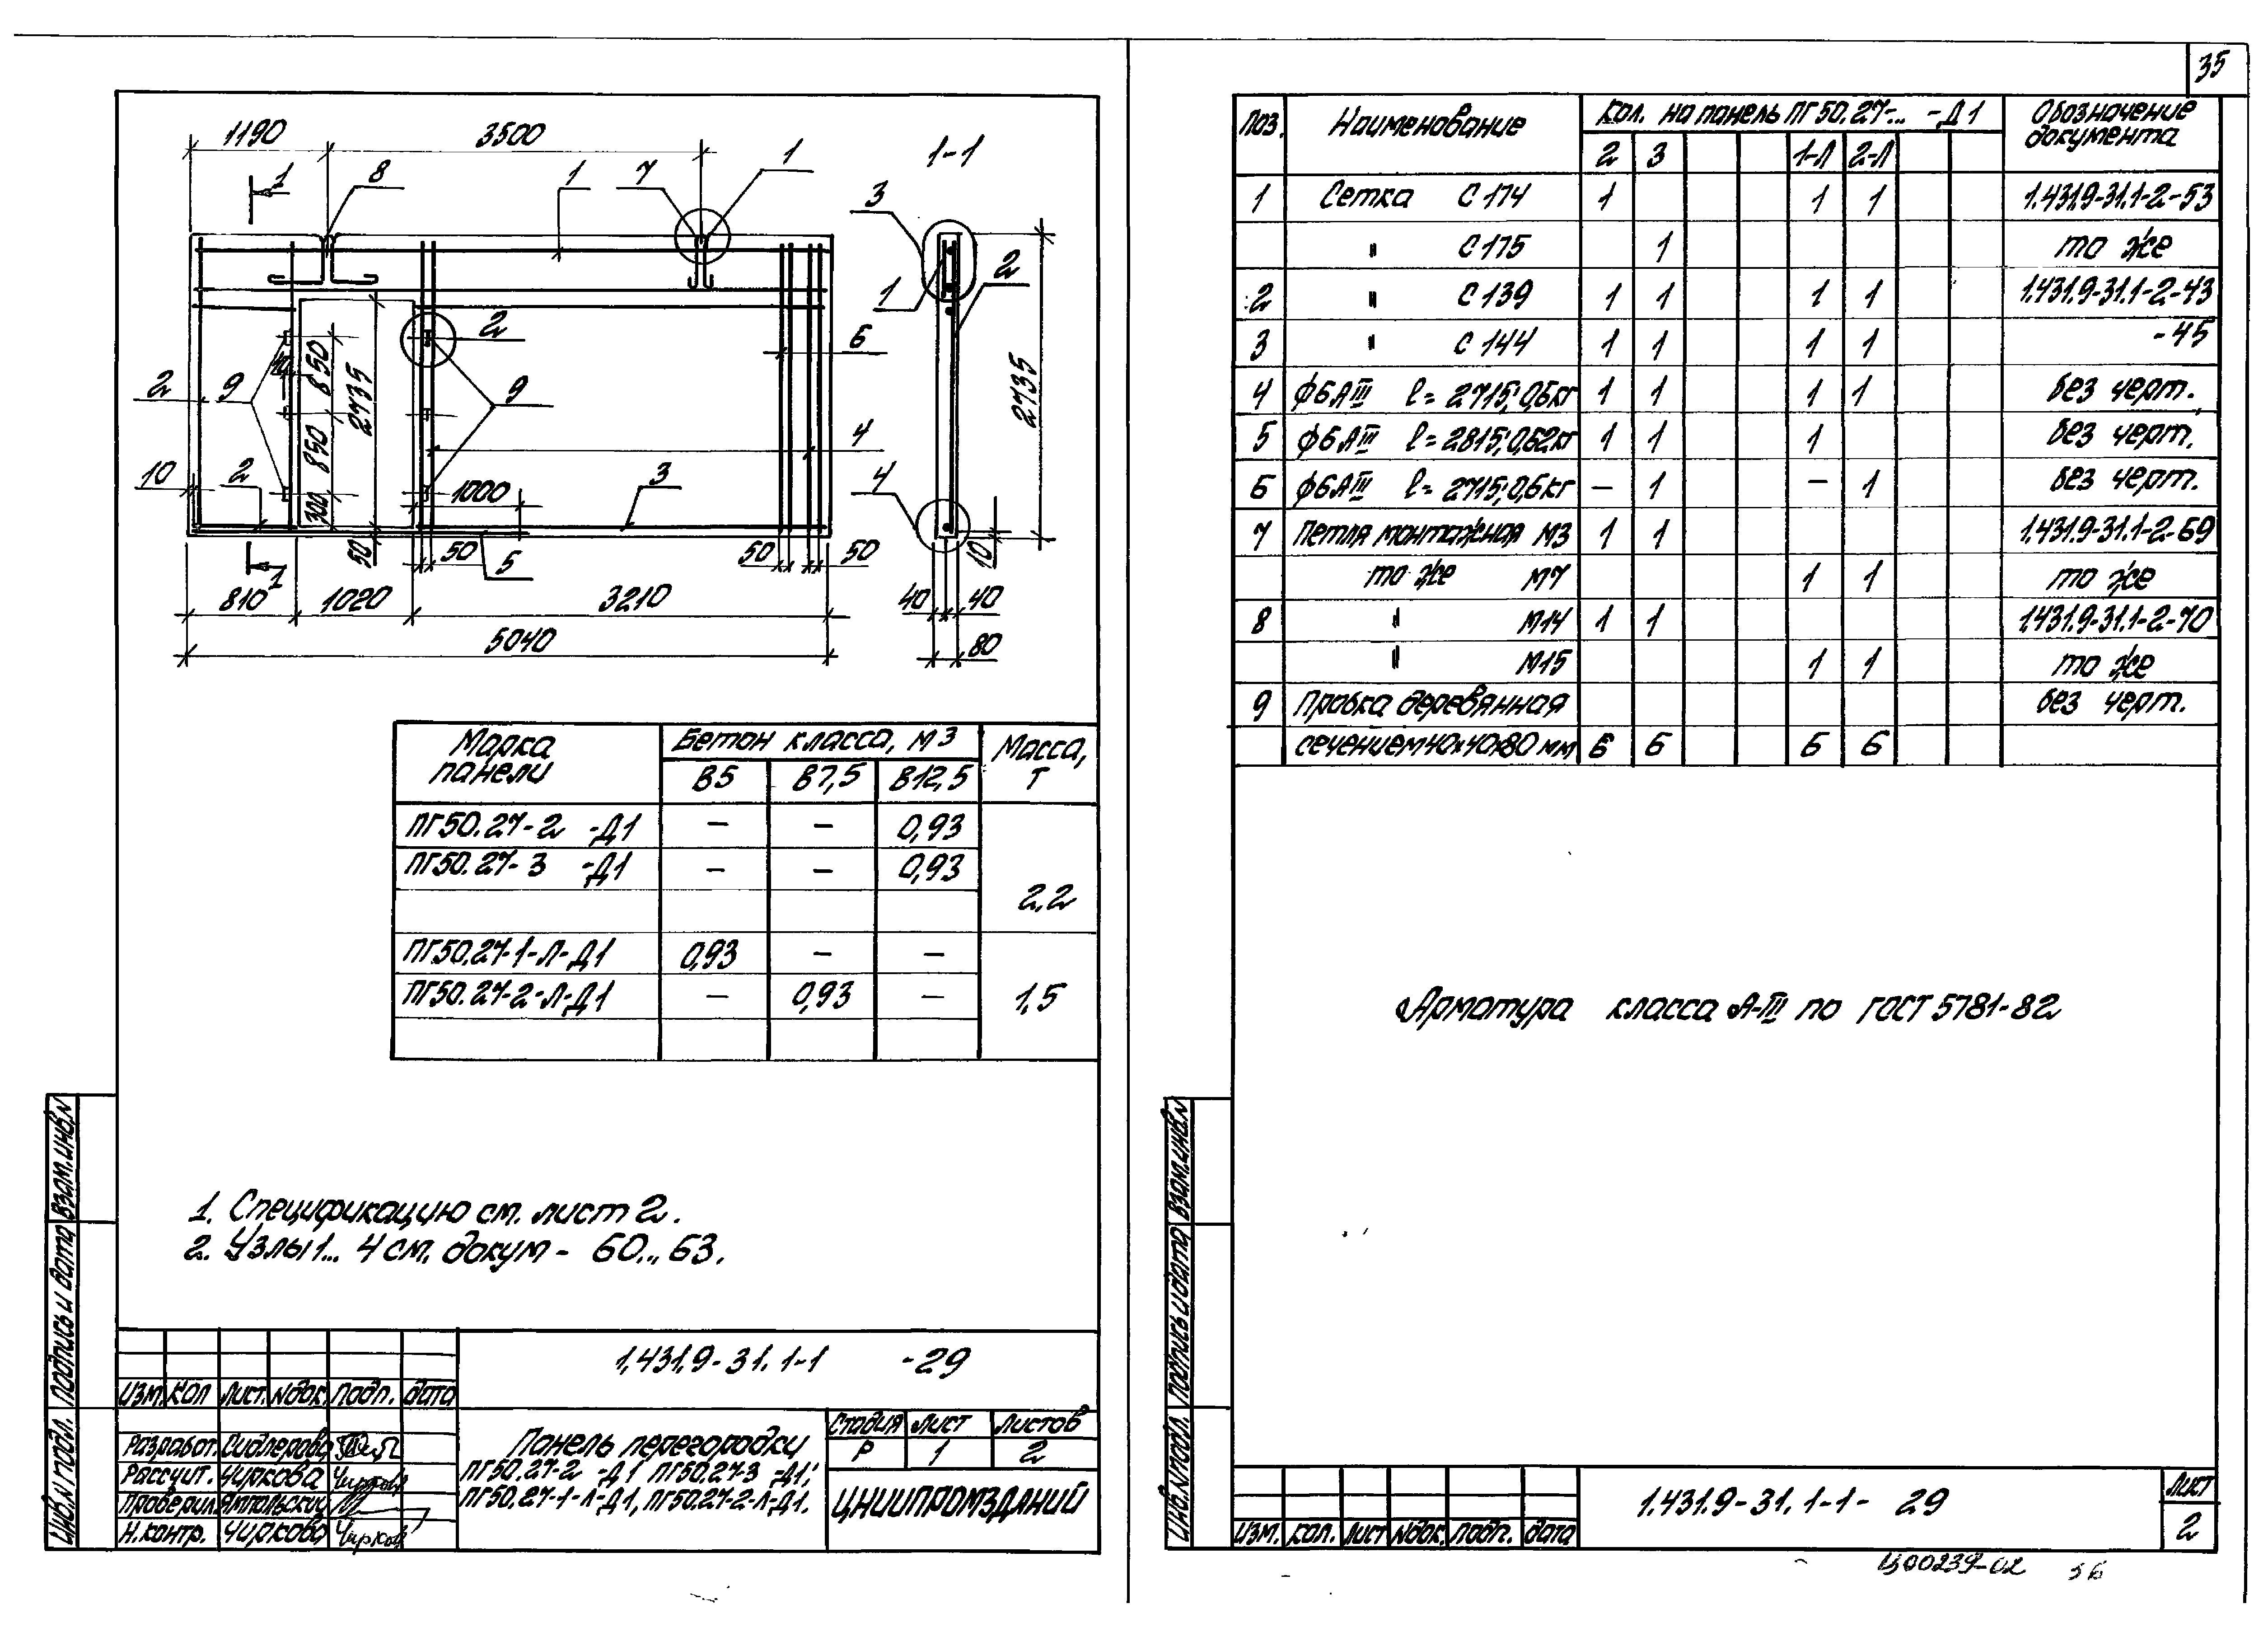 35
1190
3500
1
8
1
7
1
1-1
3
2
1
2
6
2735
2
9
10
850
2735
9
850
4
10
2
300
1000
3
4
50
50
5
50
50
10
1
810
1020
3210
40
40
5040
80
Марка панели
Бетон класса, м3
Масса, т
В5
В7,5
В12,5
ПГ50.27-2 -Д1 – – 0,93
ПГ50.27-3 -Д1 – – 0,93
2,2
ПГ50.27-1-Л-Д1 0,93 – –
ПГ50.27-2-Л-Д1 – 0,93 –
1,5
1. Спецификацию см. лист 2.
2. Узлы 1... 4 см. докум - 60... 63.
Инв. N подл.
Подпись и дата
Взам. инв. N
1.431.9-31.1-1 -29
Изм. Кол Лист. Nдок. Подп. дата
Разработ. Сидлерова
Рассчит. Чиркова Чиркова
Проверил. Ямпольский
Н.контр. Чиркова Чиркова
Панель перегородки
ПГ50.27-2 -Д1 ПГ50.27-3 -Д1;
ПГ50.27-1-Л-Д1, ПГ50.27-2-Л-Д1.
Стадия Лист Листов
Р 1 2
ЦНИИПРОМЗДАНИЙ
Поз. Наименование Кол. на панель ПГ50.27-... -Д1 Обозначение документа
2 3 1-Л 2-Л
1 Сетка С 174 1 1 1 1.431.9-31.1-2-53
" С 175 1 то же
2 " С 139 1 1 1 1 1.431.9-31.1-2-43
3 " С 144 1 1 1 1 -45
4 ф6АIII l= 2715; 0,6кг 1 1 1 1 без черт.
5 ф6АIII l= 2815; 0,62кг 1 1 1 без черт.
6 ф6АIII l= 2715; 0,6кг – 1 – 1 без черт.
7 Петля монтажная М3 1 1 1.431.9-31.1-2-69
то же М7 1 1 то же
8 " М14 1 1 1.431.9-31.1-2-70
" М15 1 1 то же
9 Пробка деревянная без черт.
сечением 40х40х80 мм 6 6 6 6
Арматура класса А-III по ГОСТ 5781-82
Инв. N подл.
Подпись и дата
Взам. инв. N
1.431.9-31.1-1- 29
Лист
2
Изм. Кол. Лист Nдок. Подп. дата
Ц00239-02 36